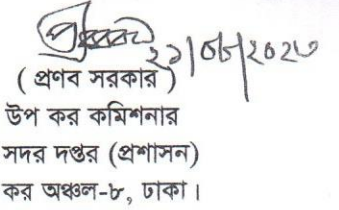 ২১/০৮/২০২৩
( প্রণব সরকার )
উপ কর কমিশনার
সদর দপ্তর (প্রশাসন)
কর অঞ্চল-৮, ঢাকা।